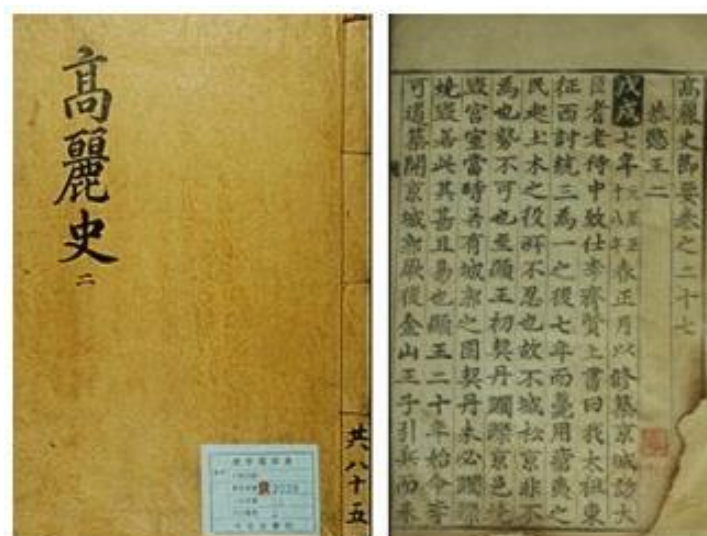 高麗史
二
共八十五
高麗史節要卷之二十七
恭愍王二
戊戌七年元至正十八年春正月以修築京城訪大
臣耆老侍中致仕李齊賢上書曰我太祖東
征西討統三爲一之後七年而薨用瘡痍之
民起土木之役所不忍也故不城松京非不
爲也勢不可也至顯王初契丹躪蹂京邑燒
毀宮室當時若有城郭之固契丹未必躪蹂
燒毀若此其甚且易也顯王二十年始命李
可道築開京城郭厥後金山王子引兵而來